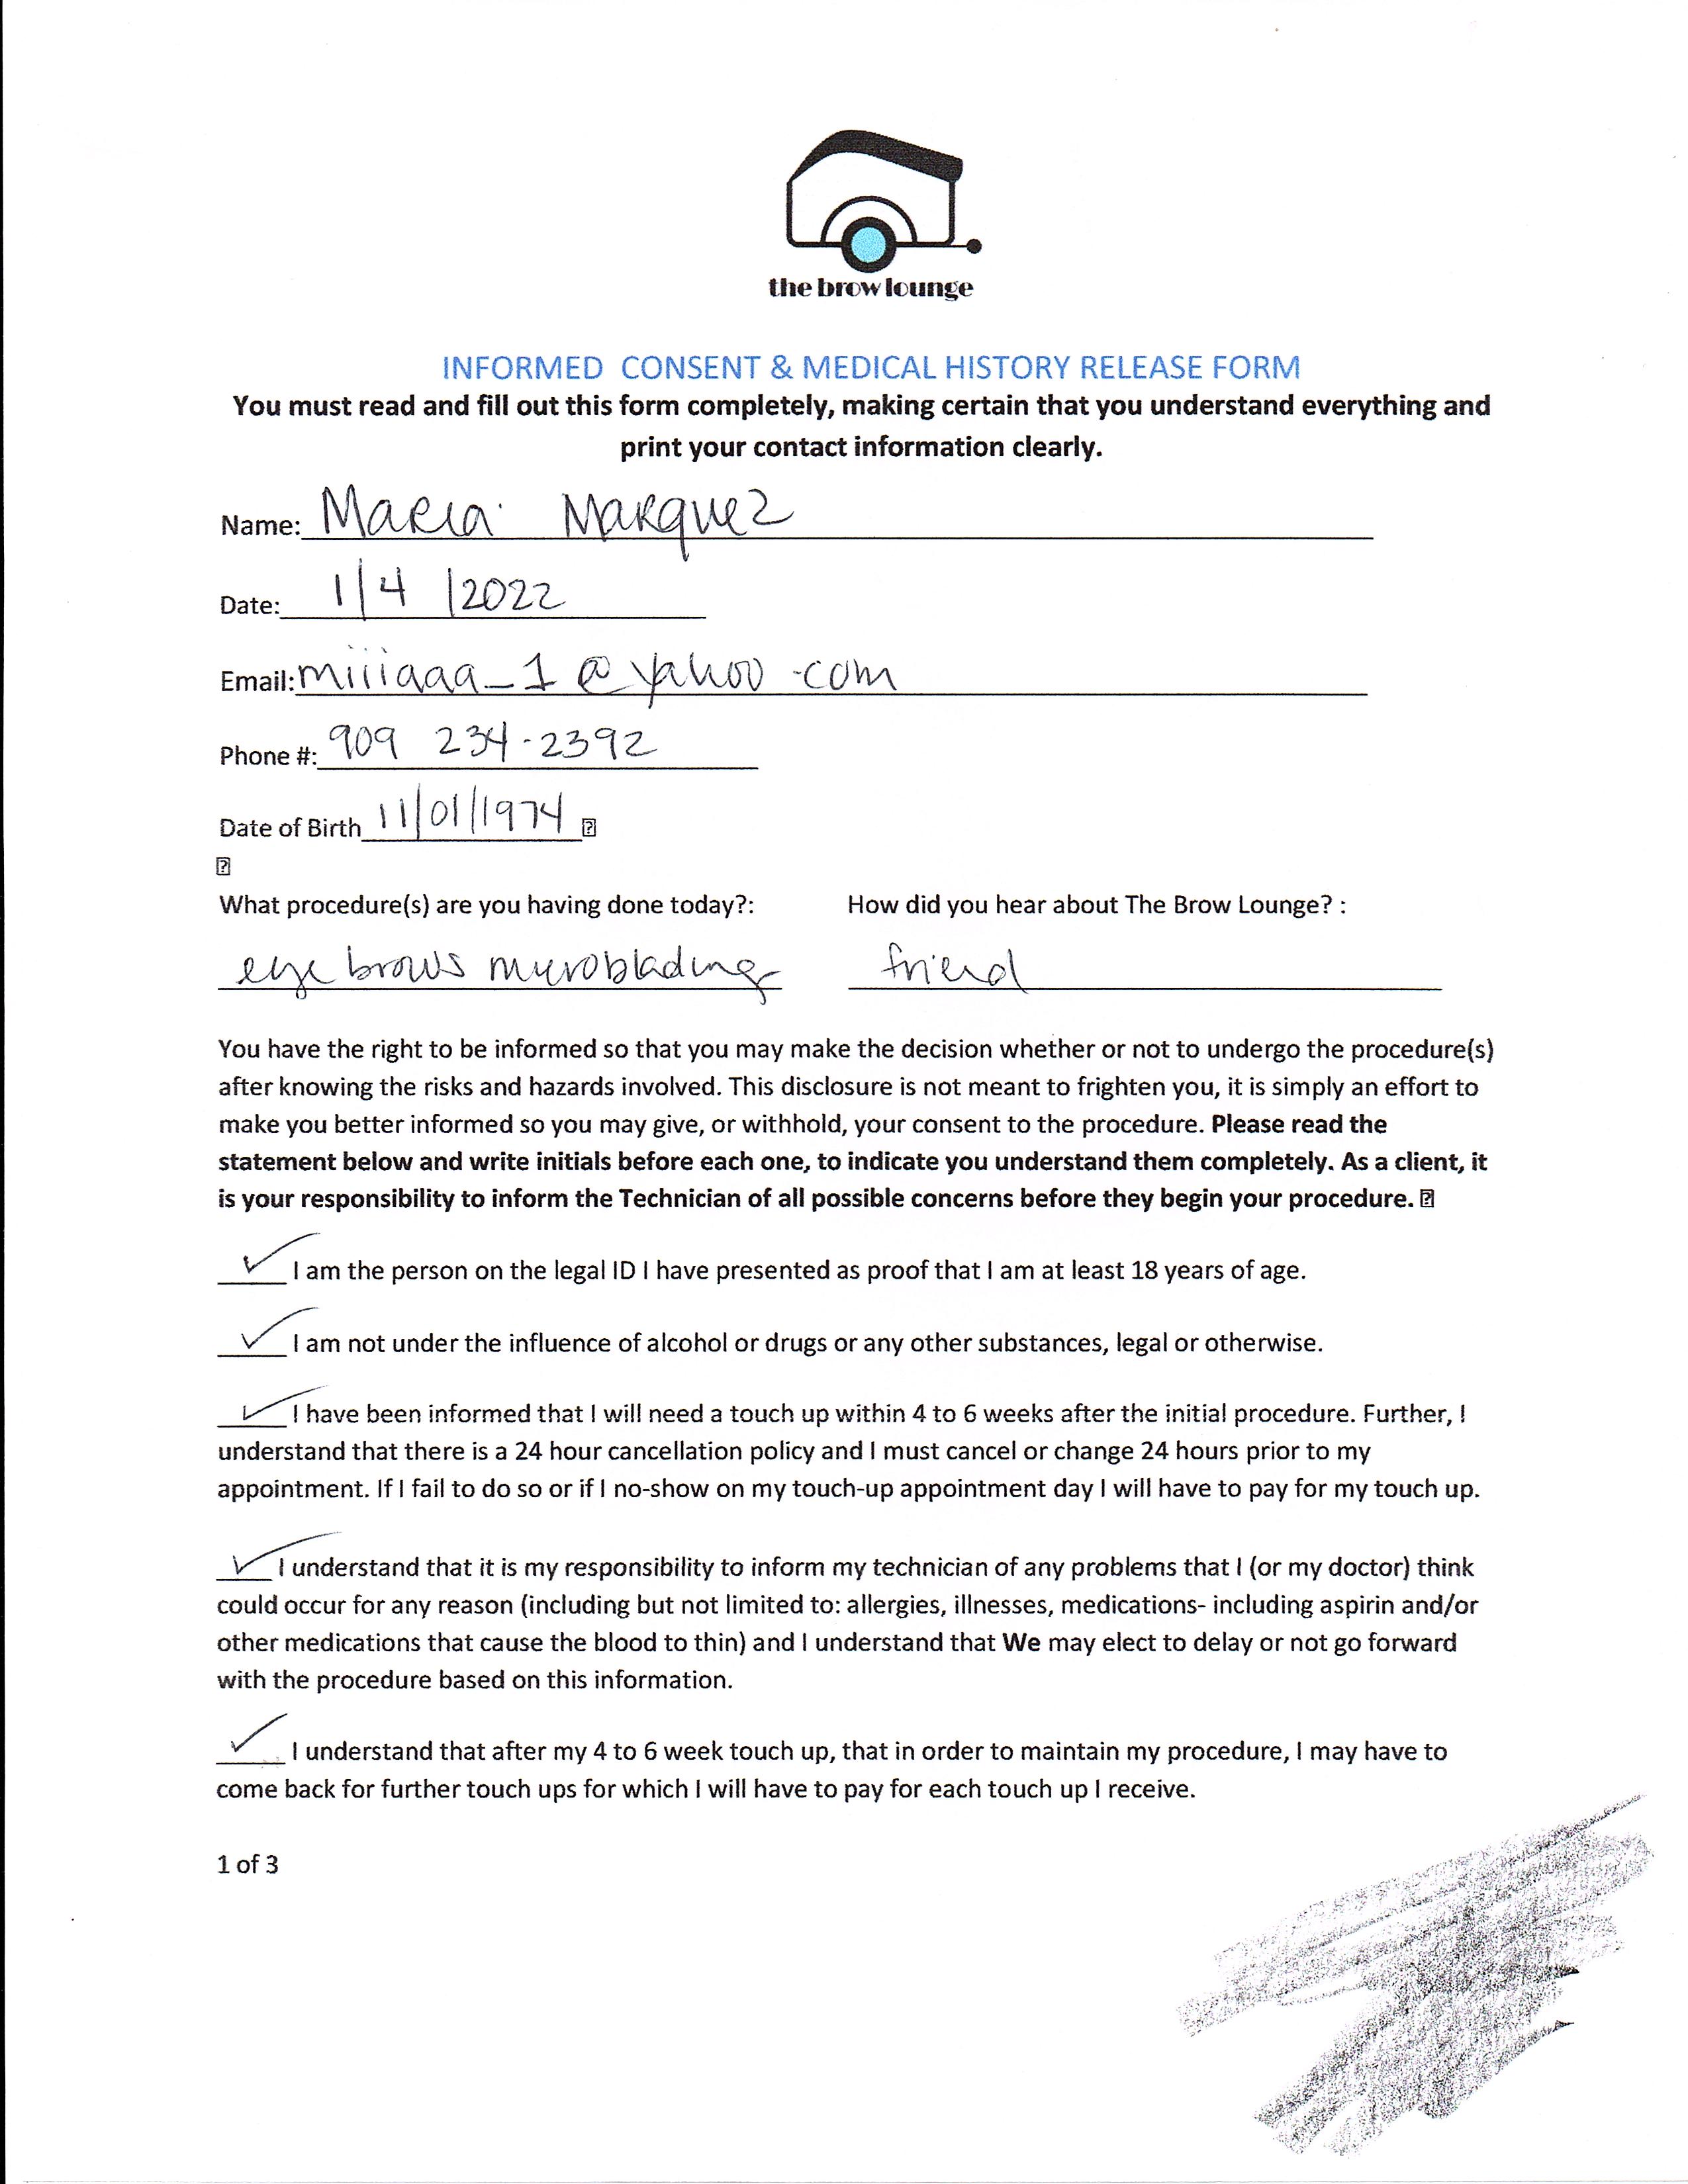 the brow lounge
INFORMED CONSENT & MEDICAL HISTORY RELEASE FORM
You must read and fill out this form completely, making certain that you understand everything and
print your contact information clearly.
Name: Maria Marquez
Date: 1/4/2022
Email: miiiaaa_1@yahoo.com
Phone #: 909 234-2392
Date of Birth 11/01/1974
What procedure(s) are you having done today?: How did you hear about The Brow Lounge? :
eye brows microblading friend
You have the right to be informed so that you may make the decision whether or not to undergo the procedure(s)
after knowing the risks and hazards involved. This disclosure is not meant to frighten you, it is simply an effort to
make you better informed so you may give, or withhold, your consent to the procedure. Please read the
statement below and write initials before each one, to indicate you understand them completely. As a client, it
is your responsibility to inform the Technician of all possible concerns before they begin your procedure.
✓ I am the person on the legal ID I have presented as proof that I am at least 18 years of age.
✓ I am not under the influence of alcohol or drugs or any other substances, legal or otherwise.
✓ I have been informed that I will need a touch up within 4 to 6 weeks after the initial procedure. Further, I
understand that there is a 24 hour cancellation policy and I must cancel or change 24 hours prior to my
appointment. If I fail to do so or if I no-show on my touch-up appointment day I will have to pay for my touch up.
✓ I understand that it is my responsibility to inform my technician of any problems that I (or my doctor) think
could occur for any reason (including but not limited to: allergies, illnesses, medications- including aspirin and/or
other medications that cause the blood to thin) and I understand that We may elect to delay or not go forward
with the procedure based on this information.
✓ I understand that after my 4 to 6 week touch up, that in order to maintain my procedure, I may have to
come back for further touch ups for which I will have to pay for each touch up I receive.
1 of 3